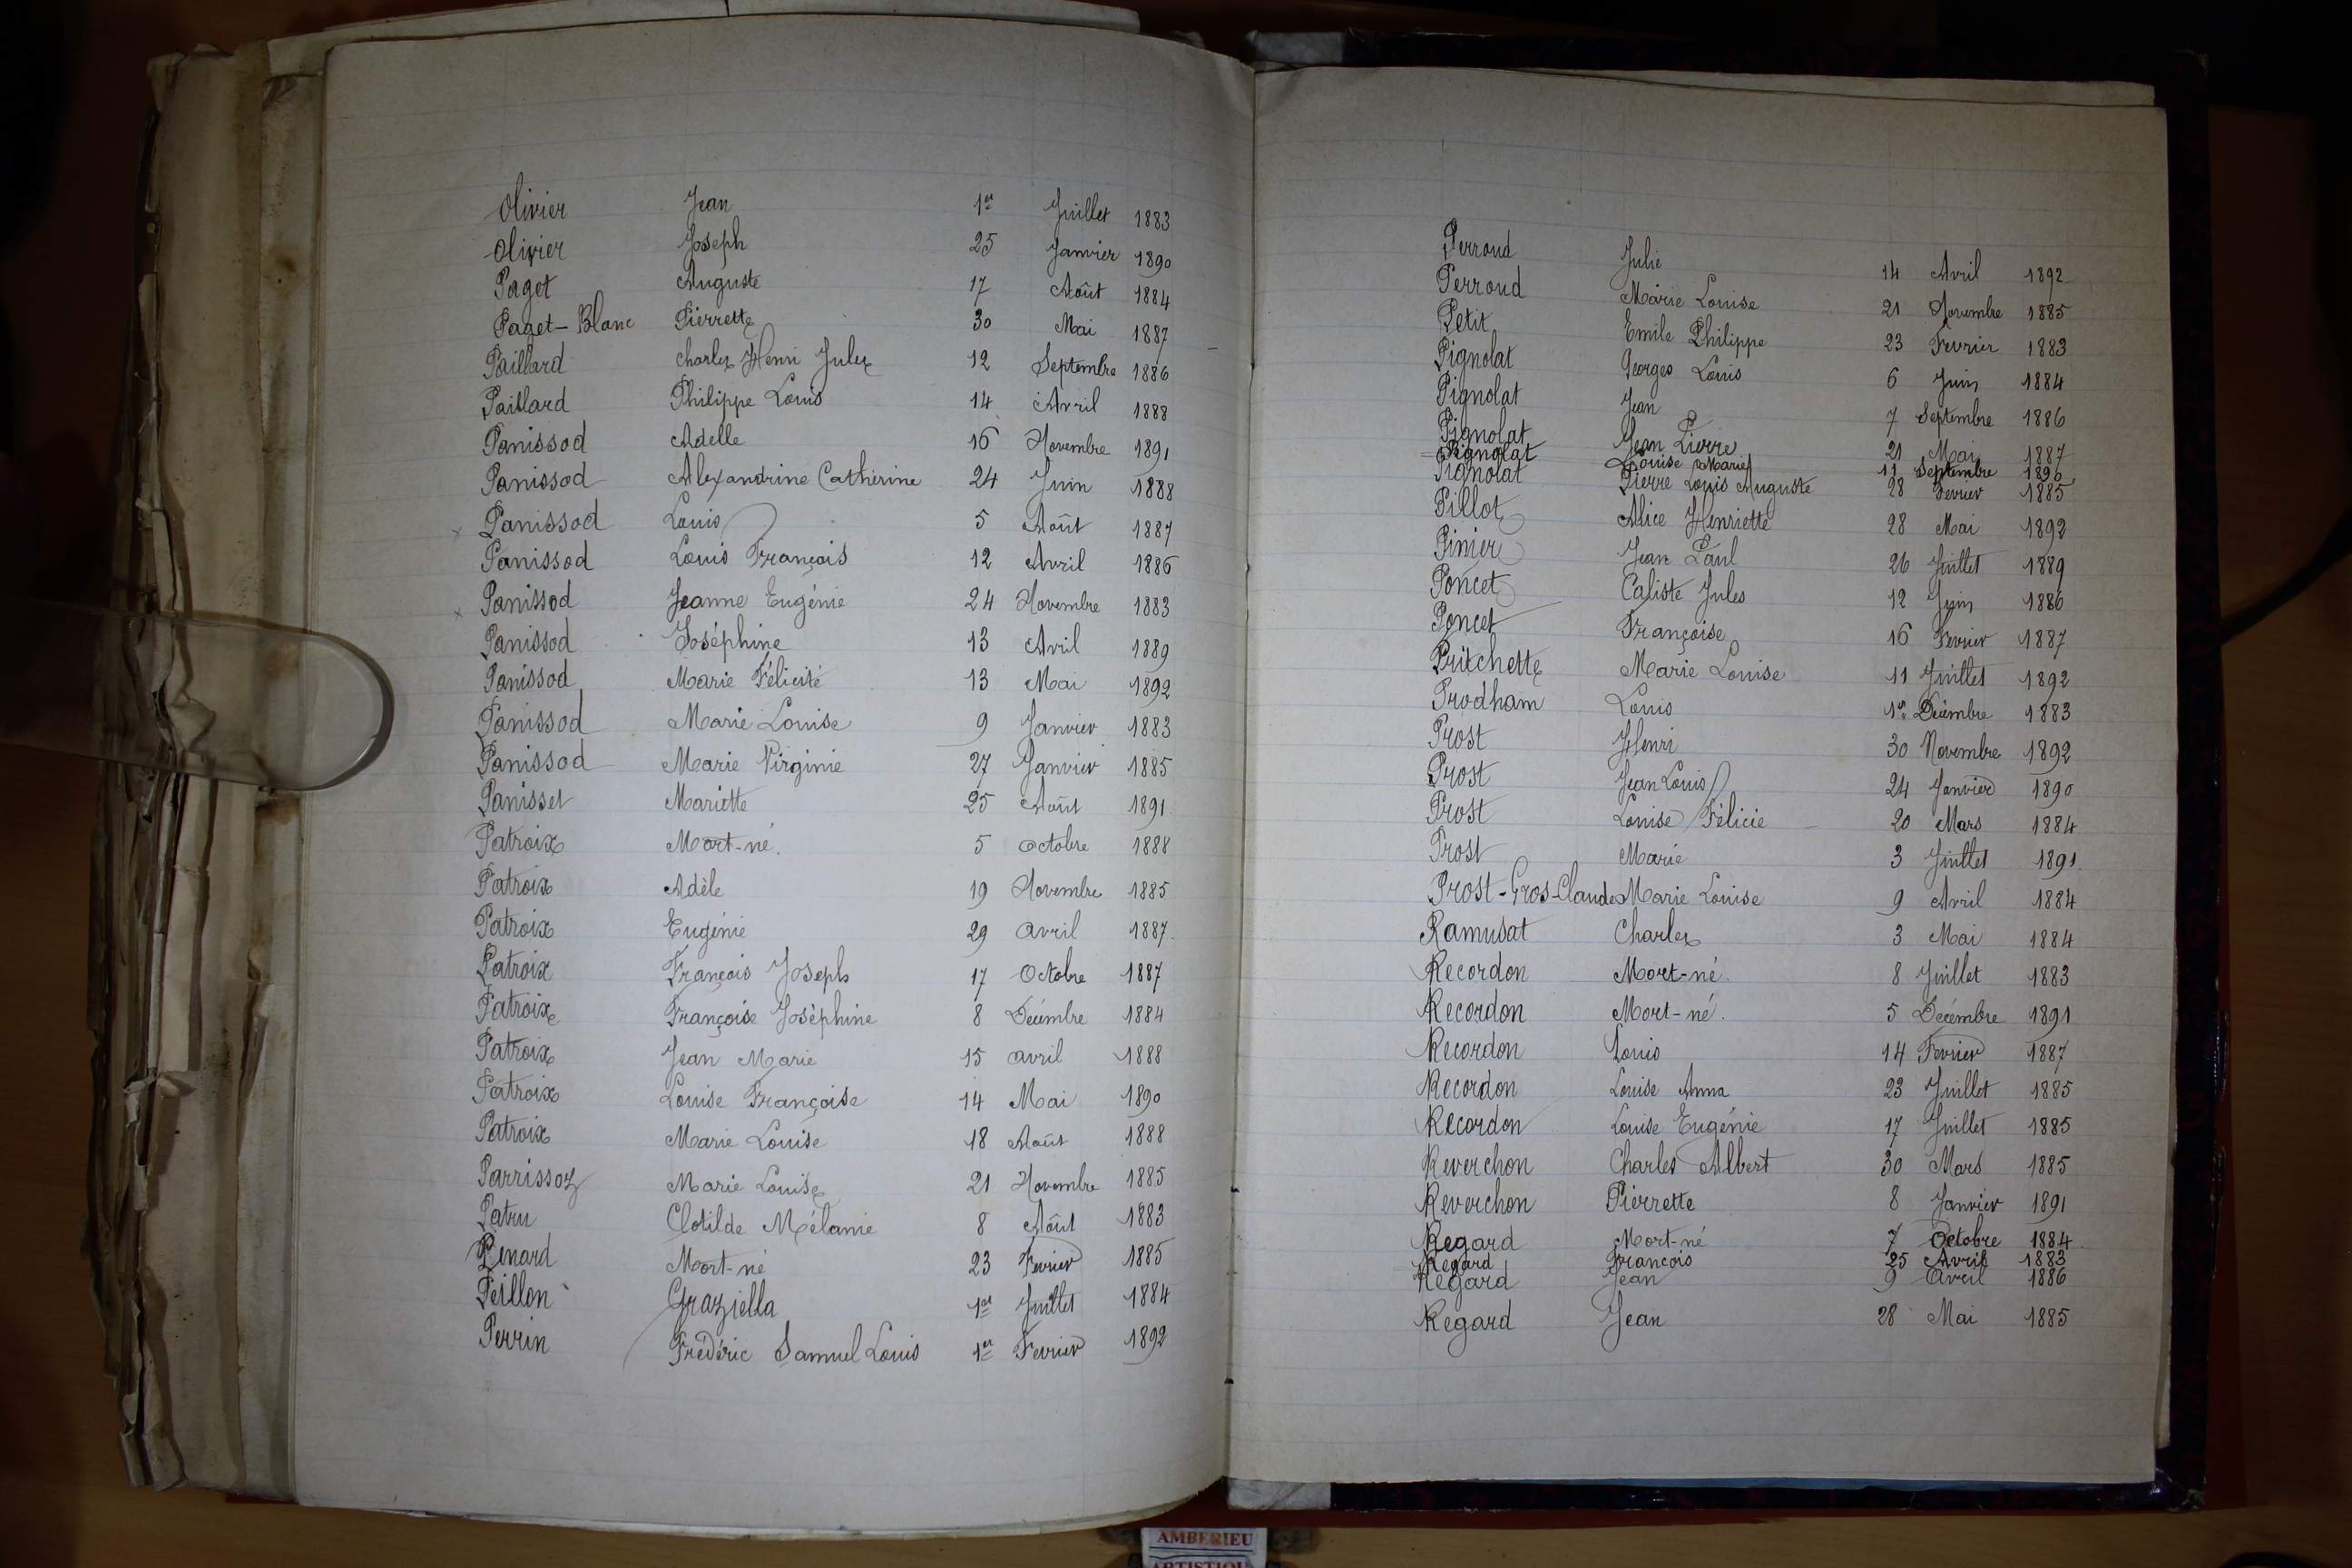 Olivier Jean 1er Juillet 1883
Olivier Joseph 25 Janvier 1890
Paget Auguste 17 Août 1884
Paget-Blanc Pierrette 30 Mai 1887
Paillard Charles Henri Jules 12 Septembre 1886
Paillard Philippe Louis 14 Avril 1888
Panissod Adelle 16 Novembre 1891
Panissod Alexandrine Catherine 24 Juin 1888
x Panissod Louis 5 Août 1887
Panissod Louis François 12 Avril 1886
x Panissod Jeanne Eugénie 24 Novembre 1883
Panissod Joséphine 13 Avril 1889
Panissod Marie Félicité 13 Mai 1892
Panissod Marie Louise 9 Janvier 1883
Panissod Marie Virginie 27 Janvier 1885
Panisset Mariette 25 Août 1891
Patroix Mort-né. 5 Octobre 1888
Patroix Adèle 19 Novembre 1885
Patroix Eugénie 29 Avril 1887
Patroix François Joseph 17 Octobre 1887
Patroix Françoise Joséphine 8 Décembre 1884
Patroix Jean Marie 15 Avril 1888
Patroix Louise Françoise 14 Mai 1890
Patroix Marie Louise 18 Août 1888
Parrissoz Marie Louise 21 Novembre 1885
Patru Clotilde Mélanie 8 Août 1883
Penard Mort-né 23 Fevrier 1885
Peillon Graziella 1er Juillet 1884
Perrin Frédéric Samuel Louis 1er Fevrier 1892
Perroud Julie 14 Avril 1892
Perroud Marie Louise 21 Novembre 1885
Petit Emile Philippe 23 Fevrier 1883
Pignolat Georges Louis 6 Juin 1884
Pignolat Jean 7 Septembre 1886
Pignolat Jean Pierre 21 Mai 1887
Pignolat Louise Marie 11 Septembre 1890
Pignolat Pierre Louis Auguste 28 Fevrier 1885
Pillot Alice Henriette 28 Mai 1892
Pinier Jean Paul 26 Juillet 1889
Poncet Caliste Jules 12 Juin 1886
Poncet Françoise 16 Fevrier 1887
Pritchette Marie Louise 11 Juillet 1892
Prodham Louis 1er Décembre 1883
Prost Henri 30 Novembre 1892
Prost Jean Louis 24 Janvier 1890
Prost Louise Félicie 20 Mars 1884
Prost Marie 3 Juillet 1891
Prost-Gros-Claude Marie Louise 9 Avril 1884
Ramusat Charles 3 Mai 1884
Recordon Mort-né. 8 Juillet 1883
Recordon Mort-né. 5 Décembre 1891
Recordon Louis 14 Fevrier 1887
Recordon Louise Anna 23 Juillet 1885
Recordon Louise Eugénie 17 Juillet 1885
Reverchon Charles Albert 30 Mars 1885
Reverchon Pierrette 8 Janvier 1891
Regard Mort-né 7 Octobre 1884
Regard François 25 Avril 1883
Regard Jean 9 Avril 1886
Regard Jean 28 Mai 1885
AMBERIEU
ARTISTIQU